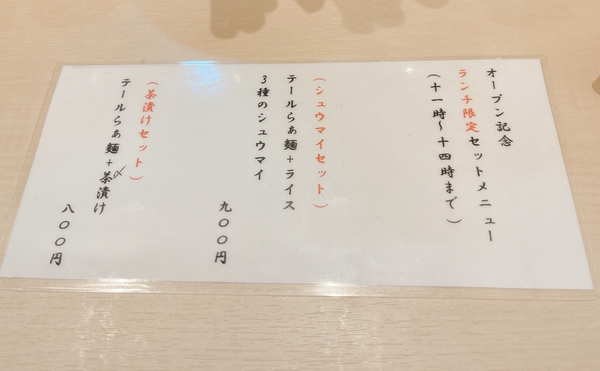 オープン記念
ランチ限定セットメニュー
(十一時〜十四時まで)
(シュウマイセット)
テールらぁ麺+ライス
3種のシュウマイ
九〇〇円
(茶漬けセット)
テールらぁ麺+〆茶漬け
八〇〇円